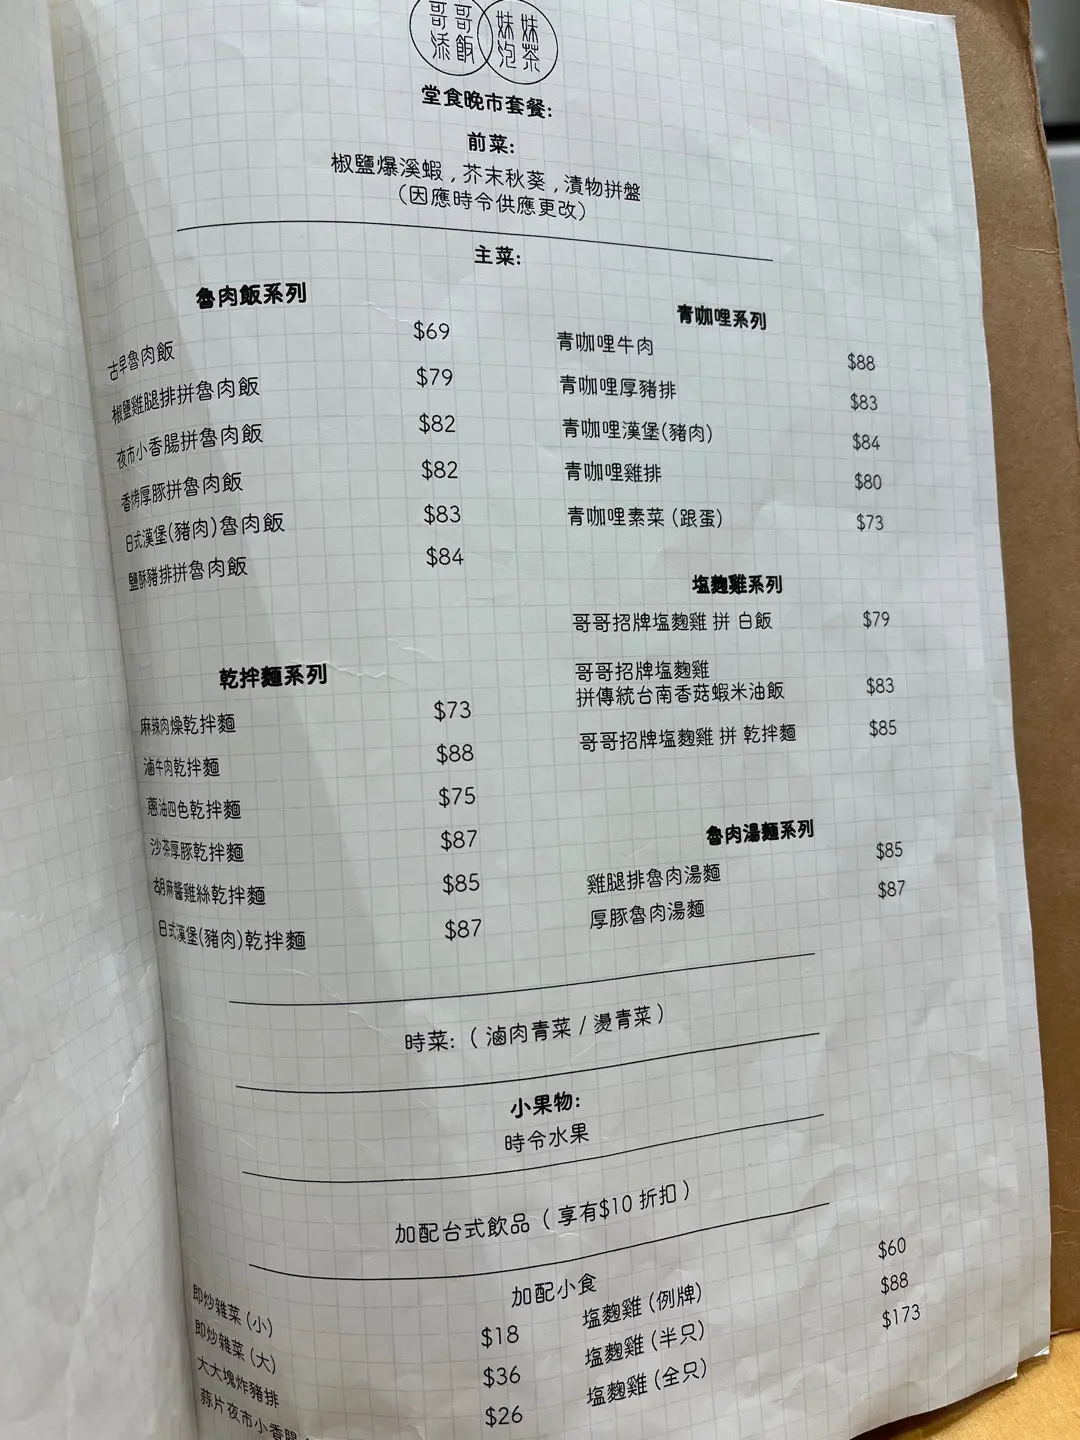 哥哥添飯 妹妹泡茶
堂食晚市套餐:
前菜:
椒鹽爆溪蝦 , 芥末秋葵 , 漬物拼盤
(因應時令供應更改)
主菜:
魯肉飯系列
古早魯肉飯 $69
椒鹽雞腿排拼魯肉飯 $79
夜市小香腸拼魯肉飯 $82
香烤厚豚拼魯肉飯 $82
日式漢堡(豬肉)魯肉飯 $83
鹽酥豬排拼魯肉飯 $84
乾拌麵系列
麻辣肉燥乾拌麵 $73
滷牛肉乾拌麵 $88
蔥油四色乾拌麵 $75
沙茶厚豚乾拌麵 $87
胡麻醬雞絲乾拌麵 $85
日式漢堡(豬肉)乾拌麵 $87
青咖哩系列
青咖哩牛肉 $88
青咖哩厚豬排 $83
青咖哩漢堡(豬肉) $84
青咖哩雞排 $80
青咖哩素菜 (跟蛋) $73
塩麴雞系列
哥哥招牌塩麴雞 拼 白飯 $79
哥哥招牌塩麴雞
拼傳統台南香菇蝦米油飯 $83
哥哥招牌塩麴雞 拼 乾拌麵 $85
魯肉湯麵系列
雞腿排魯肉湯麵 $85
厚豚魯肉湯麵 $87
時菜: ( 滷肉青菜 / 燙青菜 )
小果物:
時令水果
加配台式飲品 ( 享有$10 折扣 )
加配小食
即炒雜菜 (小) $18
即炒雜菜 (大) $36
大大塊炸豬排 $26
蒜片夜市小香腸
塩麴雞 (例牌) $60
塩麴雞 (半只) $88
塩麴雞 (全只) $173